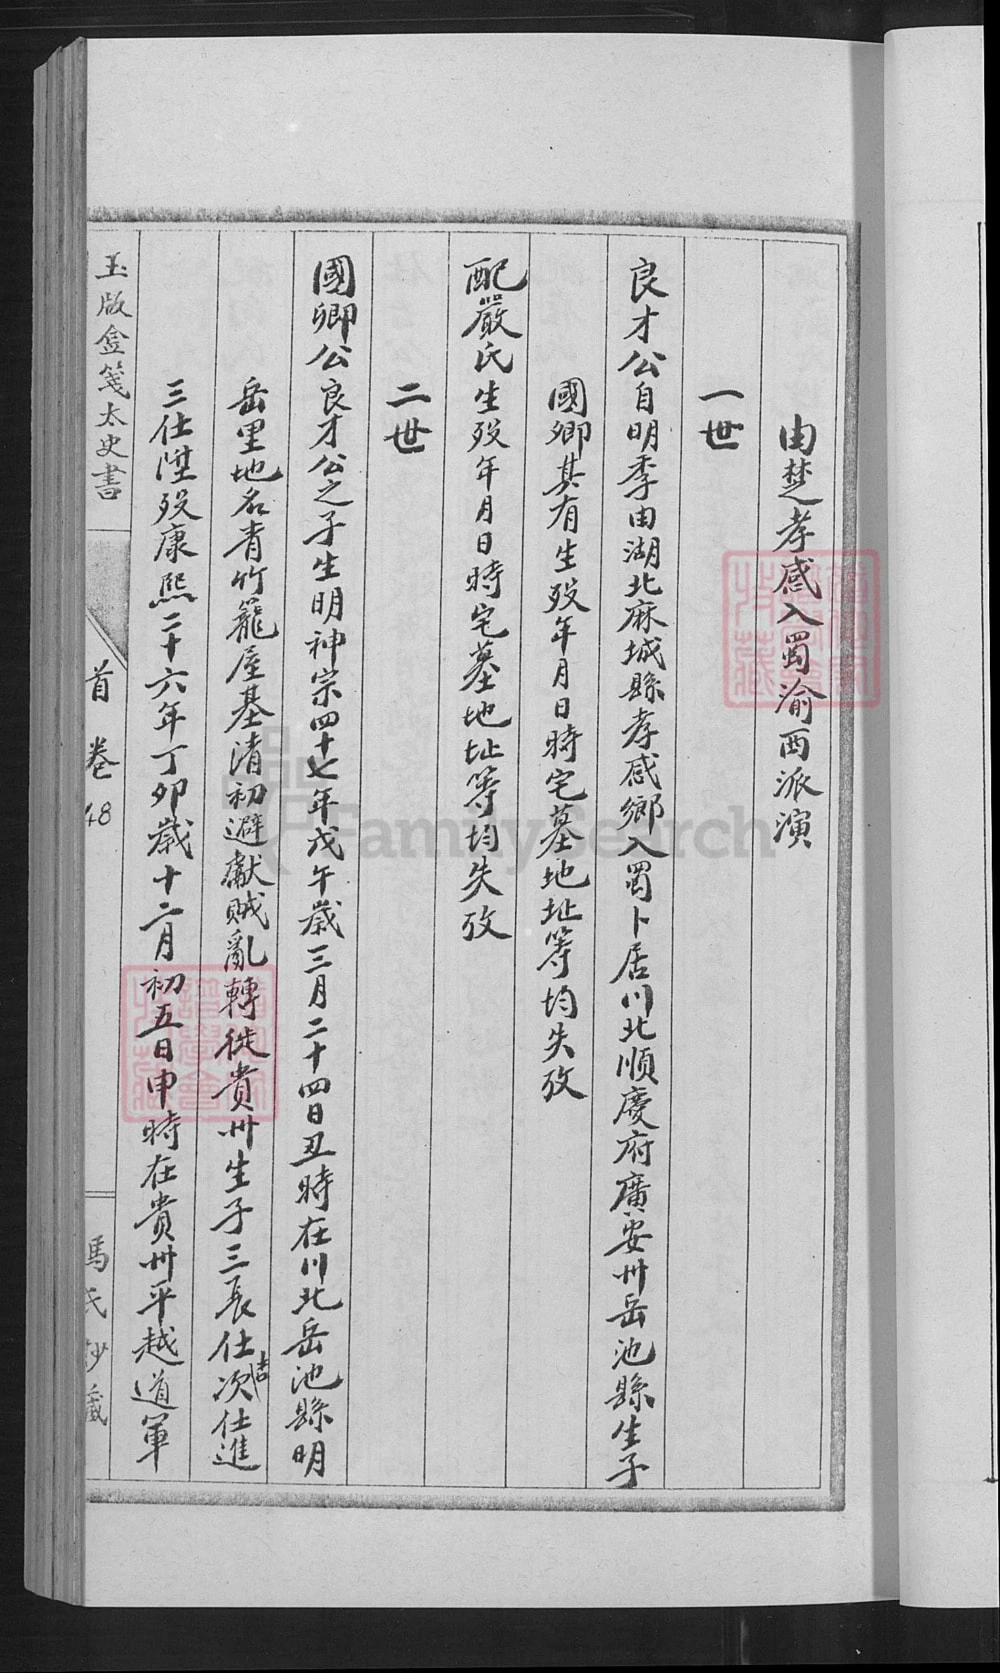 由楚孝感入蜀渝西派演
一世
良才公自明季由湖北麻城縣孝感鄉入蜀卜居川北順慶府廣安州岳池縣生子
國卿其有生歿年月日時宅墓地址等均失攷
配嚴氏生歿年月日時宅墓地址等均失攷
二世
國卿公良才公之子生明神宗四十七年戊午歲三月二十四日丑時在川北岳池縣明
岳里地名青竹籠屋基清初避獻賊亂轉徙貴州生子三長仕吉次仕進
三仕陞歿康熙二十六年丁卯歲十二月初五日申時在貴州平越道軍
玉版盒箋太史書
首卷48
馬氏抄藏
FamilySearch